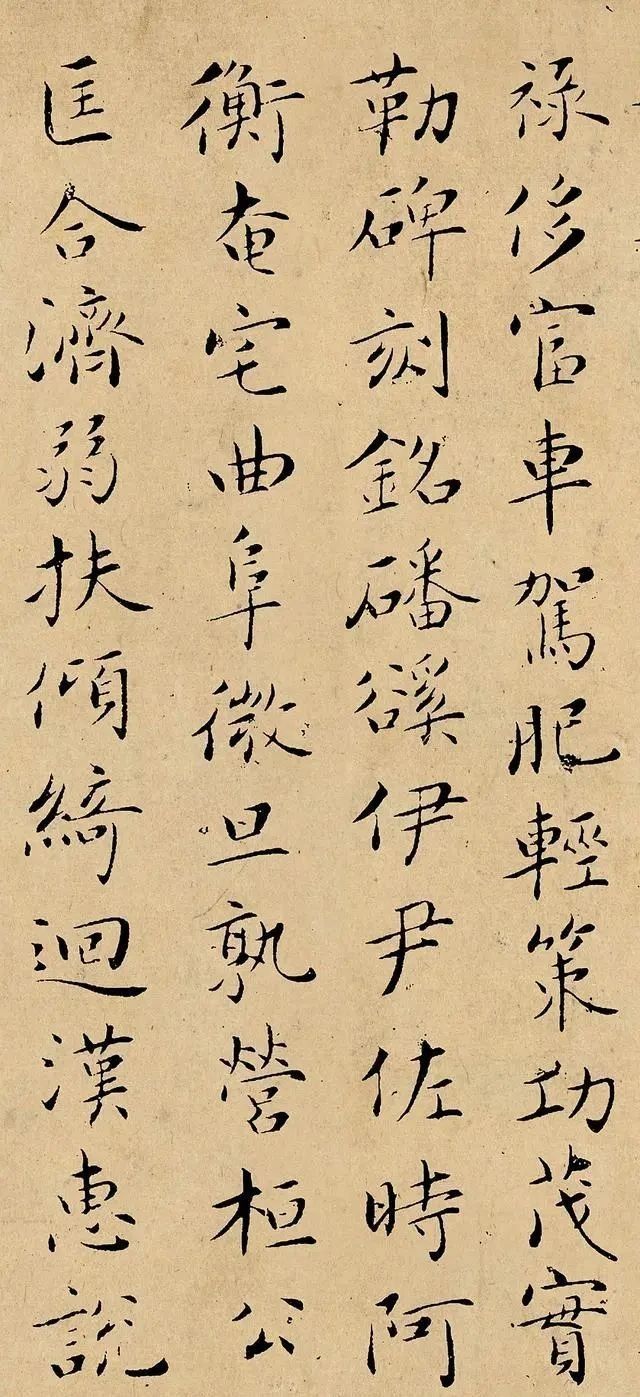 禄侈富車駕肥輕策功茂實
勒碑刻銘磻谿伊尹佐時阿
衡奄宅曲阜微旦孰營桓公
匡合濟弱扶傾綺迴漢惠說